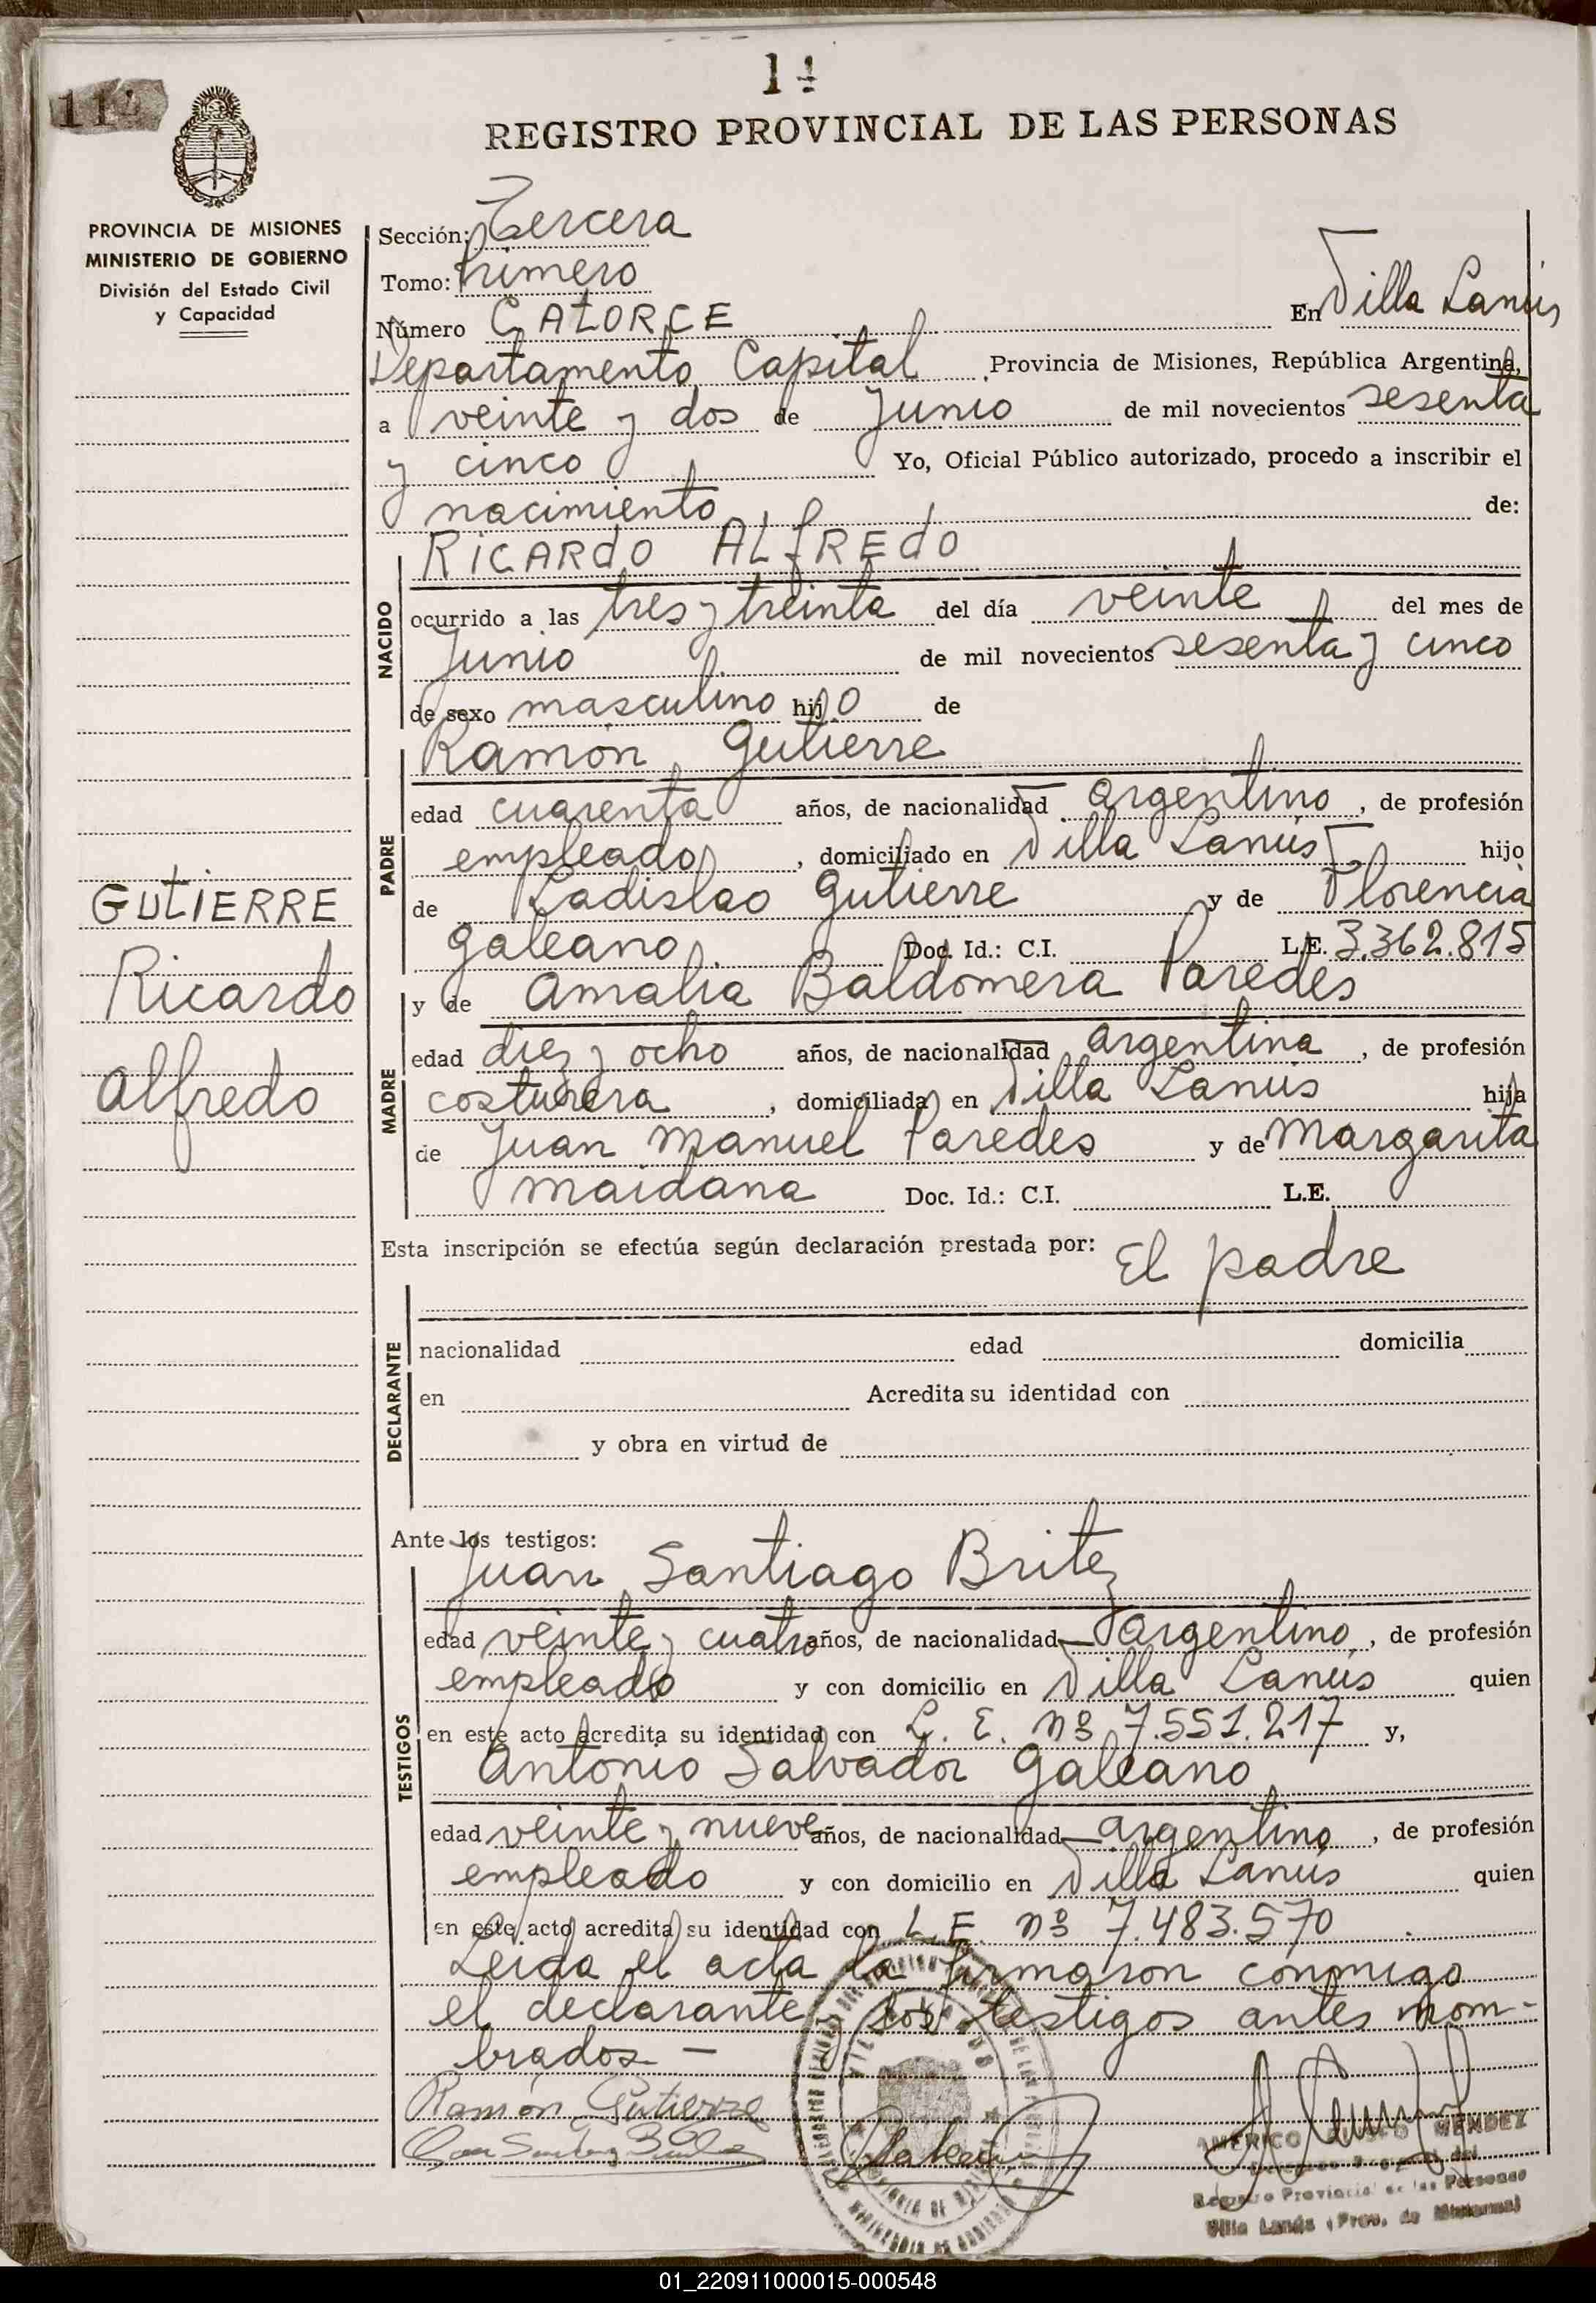 1ª
114
REGISTRO PROVINCIAL DE LAS PERSONAS
PROVINCIA DE MISIONES
MINISTERIO DE GOBIERNO
División del Estado Civil
y Capacidad
Sección: Tercera
Tomo: primero
Número CATORCE En Villa Lanús
Departamento Capital Provincia de Misiones, República Argentina,
a veinte y dos de Junio de mil novecientos sesenta
y cinco Yo, Oficial Público autorizado, procedo a inscribir el
nacimiento de:
RICARDO ALFREDO
NACIDO
ocurrido a las tres y treinta del día veinte del mes de
Junio de mil novecientos sesenta y cinco
de sexo masculino hijo de
Ramón Gutierre
PADRE
edad cuarenta años, de nacionalidad argentino, de profesión
empleado, domiciliado en Villa Lanús hijo
de Ladislao Gutierre y de Florencia
Galeano Doc. Id.: C.I. L.E. 3.362.815
y de Amalia Baldomera Paredes
MADRE
edad diez y ocho años, de nacionalidad argentina, de profesión
costurera, domiciliada en Villa Lanús hija
de Juan Manuel Paredes y de Margarita
Maidana Doc. Id.: C.I. L.E.
GUTIERRE
Ricardo
Alfredo
Esta inscripción se efectúa según declaración prestada por: El padre
DECLARANTE
nacionalidad edad domicilia
en Acredita su identidad con
y obra en virtud de
Ante los testigos:
Juan Santiago Britez
TESTIGOS
edad veinte y cuatro años, de nacionalidad argentino, de profesión
empleado y con domicilio en Villa Lanús quien
en este acto acredita su identidad con L. E. nº 7.551.217 y,
Antonio Salvador Galeano
edad veinte y nueve años, de nacionalidad argentino, de profesión
empleado y con domicilio en Villa Lanús quien
en este acto acredita su identidad con L.E. nº 7.483.570
Leida el acta la firmaron conmigo
el declarante y los testigos antes nom-
brados -
Ramón Gutierrez
AMERICO MENDEZ
Registro Provincial de las Personas
Villa Lanús (Prov. de Misiones)
01_220911000015-000548